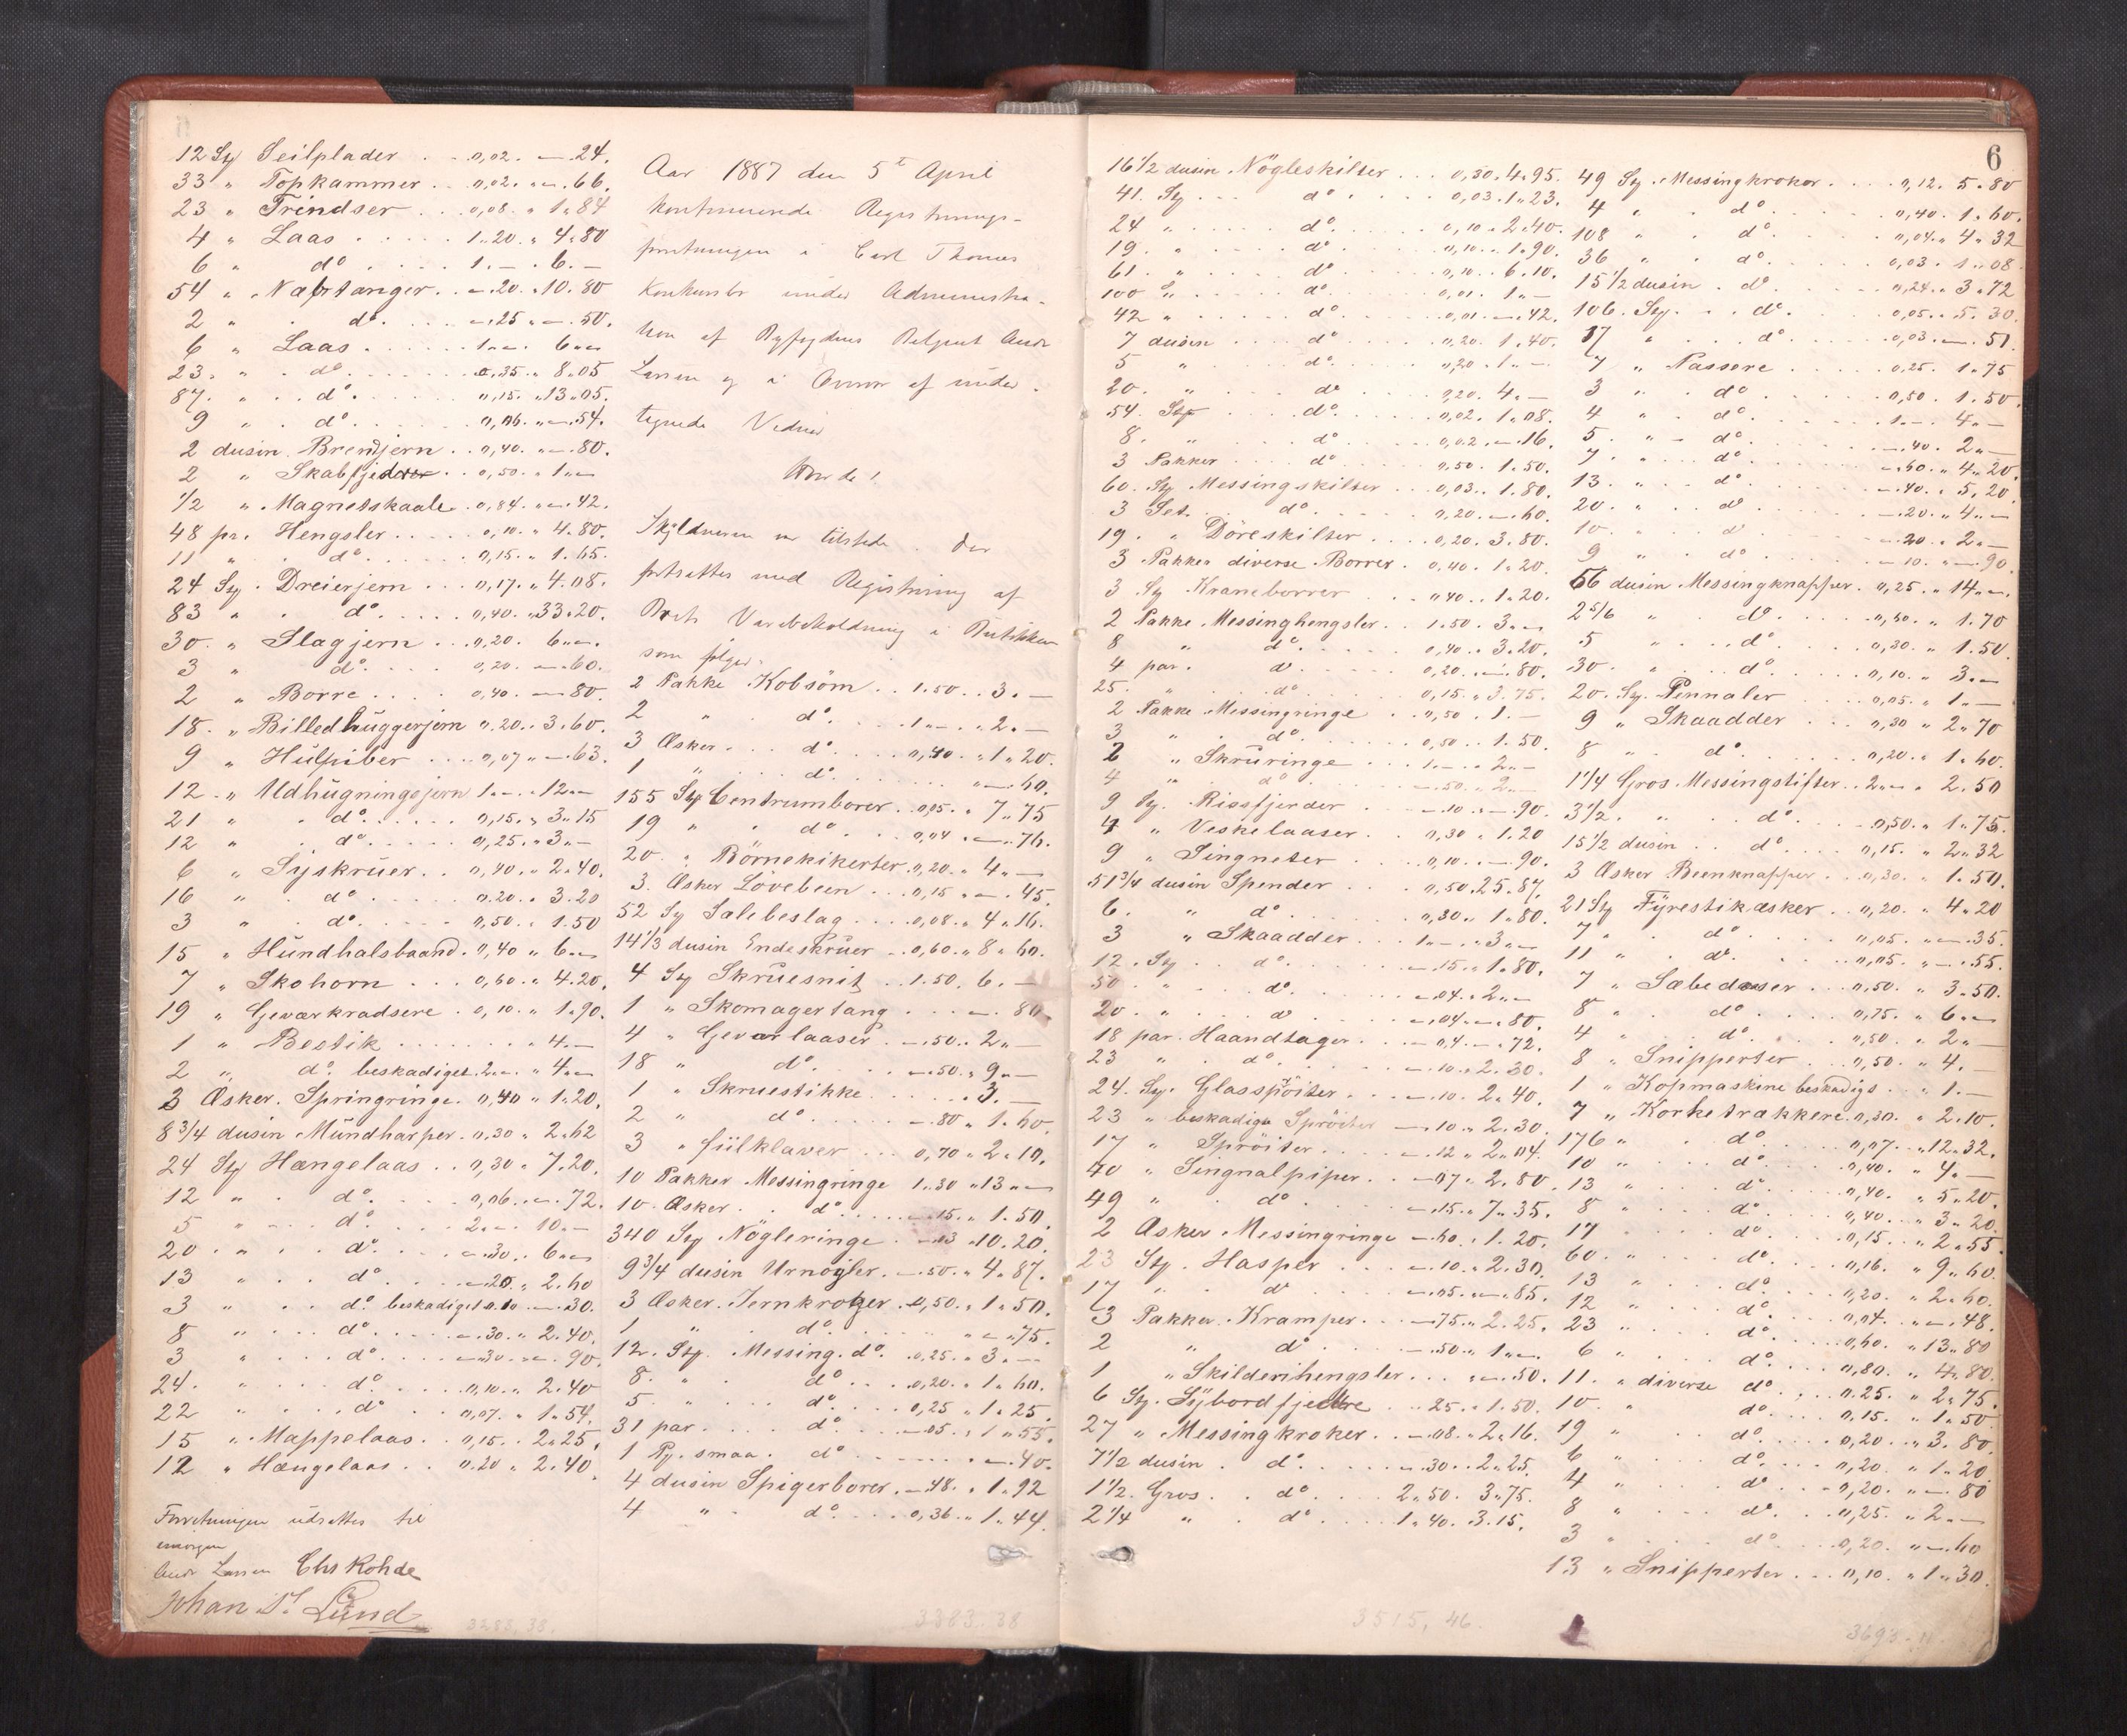 12 Stj Seilplader . . 0,02. " — .24.
33 " Topkammer . . 0,02. " — .66.
23 " Trindser . . 0,08. " 1 " 84
4 " Laas . . . . 1 " 20. " 4 " 80
6 " do . . . . 1. — . 6. —
54 " Næbtanger . . — .20. " 10.80
2 " do. . . . — .25 " — .50.
6 " Laas . . . . 1 " — . 6 " —
23. " do . . . . 0,35. " 8 " 05
87. " do. . . . 0,15. " 13 " 05.
9 " do . . . . 0,06. " — .54.
2 dusin Brendjern . . 0,40. " — .80.
2 " Skabfjedrer . . 0,50. " 1 " —
1/2 " Magnetskaale . 0,84. " — .42.
48 pr. Hengsler . . . . 0,10. " 4.80.
11 " do . . . . 0,15. " 1.65.
24 Stj. Dreierjern . . . 0,17. " 4.08.
83 " do. . . . 0,40. " 33.20.
30. " Slagjern . . . 0,20. 6 " —
3 " do. . . . 0,20. — .60.
2 " Borre . . . . 0,40. — 80.
18. " Billedhuggerjern 0,20. . 3.60.
9 " Hulpiber . . . 0,07 " — .63.
12. " Udhugningsjern 1. — . " 12 " —
21 " do. . . . 0,15. " 3 " 15
12 " do. . . . 0,25. " 3 " —
6 " Syskruer . . 0,40. " 2.40.
16 " do . . . . 0.20. " 3.20
3 " do. . . . 0,50. " 1.50
15 " Hundhalsbaand. 0,40 " 6 " —
7 " Skohorn . . . 0,60. " 4.20.
19 " Geværkradsere . 0,10. " 1 " 90.
1 " Bestik . . . . . . " 4. —
2 " do. beskadiget. 2. — . " 4 " —
3 Æsker. Springringe. 0,40 " 1.20.
8 3/4 dusin Mundharper. 0.30 " 2.62
24 Stj Hængelaas . . 0,30 " 7.20.
12 " do. . . . 0,06. — . 72.
5 " do. . . . 2. — . 10. —
20 " do. . . . — .30. . 6 " —
13 " do . . . . — .20. " 2.60
3 " do. beskadiget 0.10 — .30.
8 " do. . . . — .30. " 2.40.
3 " do. . . . — .30. " — . 90.
24. " do. . . . 0,10. " 2.40
22 " do . . . . 0,07. " 1 " 54.
15 " Mappelaas. . 0,15. . 2 " 25.
12 " Hængelaas . . 0.20 " 2.40.
Forretningen udsættes til
imorgen
Andr Larsen Chs Rohde
Johan St Lund
3283.38.
Aar 1887 den 5t April
kontinuerede Registrerings-
forretningen i Carl Thomes
Konkursbo under Administra-
tion af Byfogdens Betjent Andr
Larsen og i Overvær af under-
tegnede Vidner
Hvorda!
Skyldneren var tilstede. Der
fortsattes med Registrering af
Boets Varebeholdning i Butikken
som følger.
2 Pakke Kobsöm . . 1.50 . . 3. —
2 " do. . . . 1 " — . " 2. —
3 Æsker . . do. . . . 0,40. " 1 " 20.
1 " do. . . . . . " — .60.
155 Stj Centrumborer . 0,05. " 7 " 75
19 " do. . . . 0,04 " — " 76.
20. " Börnekikerter 0,20. " 4 " —
3. Æsker Lövebeen . . . 0,15 " — . 45.
52 Stj Salebeslag . . . 0,08. " 4 " 16.
14 1/3 dusin Endeskruer . . 0,60. " 8 " 60.
4 Stj Skruesnit . . 1.50. 6. —
1 " Skomagertang . . . — . 80.
4 " Geværlaaser . . — .50. . 2 " —
18 " do. . . . — .50. " 9 " —
1 " Skruestikke . . . . . . 3. —
2 " do . . . . — .80 " 1.60.
3 " fiilklaver . . . 0,70 " 2 " 10.
10 Pakker Messingringe 1 " 30 " 13 " —
10. Æsker . . do . . . . — .15. " 1.50.
340 Stj Nögleringe . . — .03 " 10.20.
9 3/4 dusin Urnøgler . . — .50. " 4 " 87.
3 Æsker. Jernkroger . 0,50. " 1 " 50.
1 " do. . . . . " — " 75.
12. Stj. Messing. do. . 0,25. " 3. —
8. " do . . . 0,20. " 1 " 60.
5. " do. . . . 0,25 " 1 " 25.
31 par . . . do. . . . — .05. " 1 " 55.
1 Pj. smaa . do . . . . . — .40.
4 dusin Spigerborer . — .48. " 1 " 92
4 " do. . . . 0,36. " 1 " 44.
3383.38
6
16 1/2 dusin Nögleskilter . . . 0,30.4 " 95.
41. Stj . . . do . . . . 0,03.1 " 23.
24 " do. . . . 0,10 " 2.40.
19. " do . . . . 0,10. " 1 " 90.
61. " do . . . . 0,10. . 6.10.
100 " do. . . . 0,01. 1 " —
42 " do. . . . 0,01. — .42.
7 dusin . . . do . . . . 0,20. 1.40.
5 " do. . . . 0,20. 1 " —
20. " do . . . . 0,20. 4. —
54. Stj . . do. . . . 0,02. 1 " 08.
8. " do . . . . 0,02. — .16.
3 Pakker . . do . . . . 0,50. 1.50.
60. Stj Messingskilter . . . 0,03. . 1.80.
3 Set. . . do. . . . 0,20. — .60.
19. " Döreskilter . . . . 0,20. 3.80.
3 Pakker diverse Borrer . 0,40. 1 " 20.
3 Stj Kraneborrer . . . " 40. . 1 " 20.
2 Pakke Messinghengsler . . 1.50. 3 " —
8 " do. . . . 0,40. " 3.20.
4 par. . . do . . . . 0,20. — .80.
25. " do . . . . 0,15. " 3.75.
2 Pakke Messingringe . . 0,50 . 1. —
3 " do. . . . 0,50. . 1.50.
2 " Skruringe . . . . 1. — . 2 " —
4 " do . . . . — .50. 2 " —
9 Stj. Rissfjerder . . — .10 " — .90.
4 " Veskelaaser . . 0,30 " 1.20
9 " Singneter . . . 0,10. " — .90.
51 3/4 dusin Spender . . . 0,50.25.87.
6. " do. . . . 0,30. " 1 " 80.
3 " Skaadder . . . 1 " — . " 3 " —
12. Stj . . do. . . . — .15. " 1.80.
50 " do. . . . — .04. " 2 " —
20. " do . . . . — .04. " — .80.
18 par. Haandtager . . . — .04. — .72.
23 " do. . . . — .10. " 2.30.
24. Stj. Glasspöiter . . . — .10. 2.40.
23 " beskadige Spröiter — .10 " 2.30.
17 " Spröiter . . . — .12 " 2 " 04.
40 " Singnalpiper . . — .07 " 2.80.
49 " do. . . . — .15. " 7 " 35.
2 Æsker Messingringe — .60 . 1.20.
23 Stj. Hasper . . . — .10. " 2.30.
17 " do . . . . — .05. " — .85.
3 Pakker Kramper . . . — .75. " 2.25.
2 " do . . . . — .50. " 1 " —
1 " Skilderihengsler . . . " — .50.
6 Stj. Sybordfjedre . . 25. . 1.50.
27 " Messingkroker . . — .08. " 2 " 16.
7 1/2 dusin . do. . . . — .30 . . 2 " 25.
1 1/2. Gros . . do. . . . 2 " 50. 3 " 75.
2 1/4 " do . . . . 1 " 40. . 3.15.
3515,46.
49 Stj. Messingkroker . . . . 0,12. 5.80
4 " do. . . . 0,40. 1.60.
108 " do . . . . 0,04. " 4 " 32
36 " do. . . . 0,03. 1 " 08.
15 1/2 dusin . do . . . . 0,24. " 3 " 72
106. Stj. . . do. . . . 0,05. . 5.30.
17 " do. . . . 0,03. — . 51.
7 " Passere . . . . 0,25. 1 " 75
3 " do . . . . 0,50. 1.50.
4 " do. . . . 1. — . 4. —
5. " do. . . . — .40. 2 " —
7. " do. . . . — .60. " 4 " 20.
13. " do . . . . — .40. " 5,20.
20. " do . . . . — .20. " 4 " —
10. " do . . . . — .20 . 2 " —
9 " do . . . . — 10. " — .90.
56 dusin Messingknapper. 0,25. " 14 " —
2 5/6 " do . . . . 0,60. " 1.70
5 " do . . . . 0,30. " 1.50.
30. " do . . . . 0,10. " 3. —
20. Stj. Pennaler . . . . 0,05. " 1 " —
9 " Skaadder . . . 0,30 " 2 " 70
8 " do. . . . 0,20. " 1.60.
1 1/4 Gros Messingstifter . . 2 " — . 2.50
3 1/2. " do . . . . 0,50. " 1 " 75.
15 1/2 dusin . . do . . . . 0,15. " 2 " 32
3 Æsker Beenknapper . . . 0,30. " 1.50.
21 Stj Fyrestikæsker . . 0,20. " 4 " 20
7 " do. . . . 0,05. " — .35.
11 " do. . . . 0,05. " — .55.
7 " Sæbedaaser . . . 0,50. " 3.50.
8 " do. . . . 0,75. " 6 " —
4 " do. . . . 0,50. " 2 " —
8 " Snipperter . . . 0,50. " 4. —
1 " Kopmaskine beskadigs . . " 1. —
7 " Korketrækkere 0,30. " 2.10.
176 " do. . . . 0,07. " 12 " 32.
10 " do. . . . 0,40. " 4. —
13 " do. . . . 0,40. " 5 " 20.
8 " do. . . . 0,40. " 3 " 20.
17 " do. . . . 0,15. " 2 " 55.
60. " do. . . . 0,16. " 9 " 60.
13 " do. . . . 0,20. " 2 " 60.
12 " do. . . . 0,04. " — .48.
23 " do. . . . 0,60. " 13 " 80
6 " do. . . . 0,80. " 4 " 80.
11. " diverse do. . . . 0.25. " 2 " 75.
10. " do. . . . 0,15. " 1 " 50
19 " do. . . . 0,20. " 3.80.
6 " do. . . . 0,20. " 1 " 20.
4 " do. . . . 0,20. " — .80
8 " do. . . . 0,25. " 2 " —
3 " do. . . . 0,20. " — .60
13 " Snipperter . . . 0,10. " 1 " 30.
3693.11